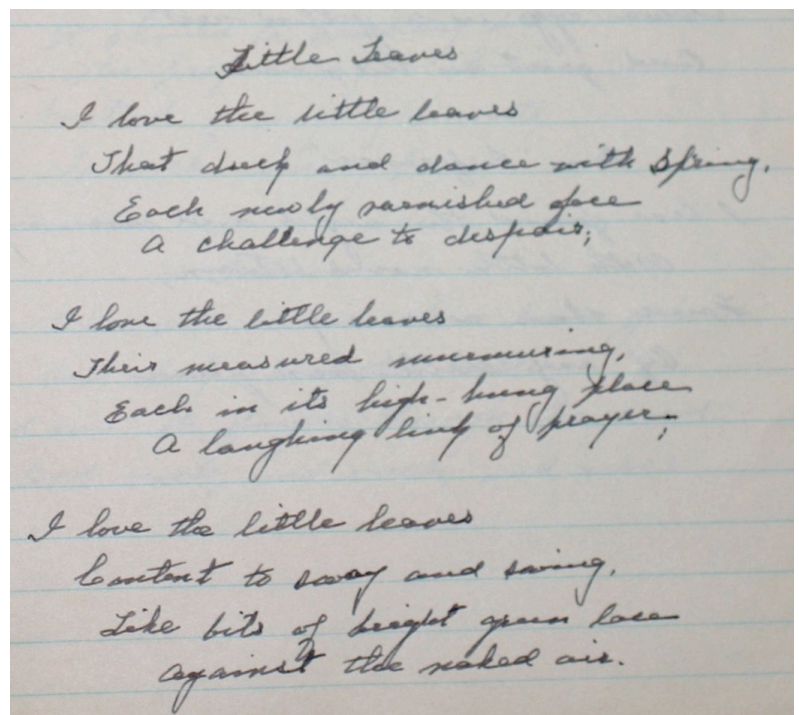 Little Leaves
I love the little leaves
That drip and dance with Spring,
Each newly varnished face
A challenge to despair;
I love the little leaves
Their measured murmuring,
Each in its high-hung place
A laughing link of prayer;
I love the little leaves
Content to sway and swing,
Like bits of bright green lace
Against the naked air.